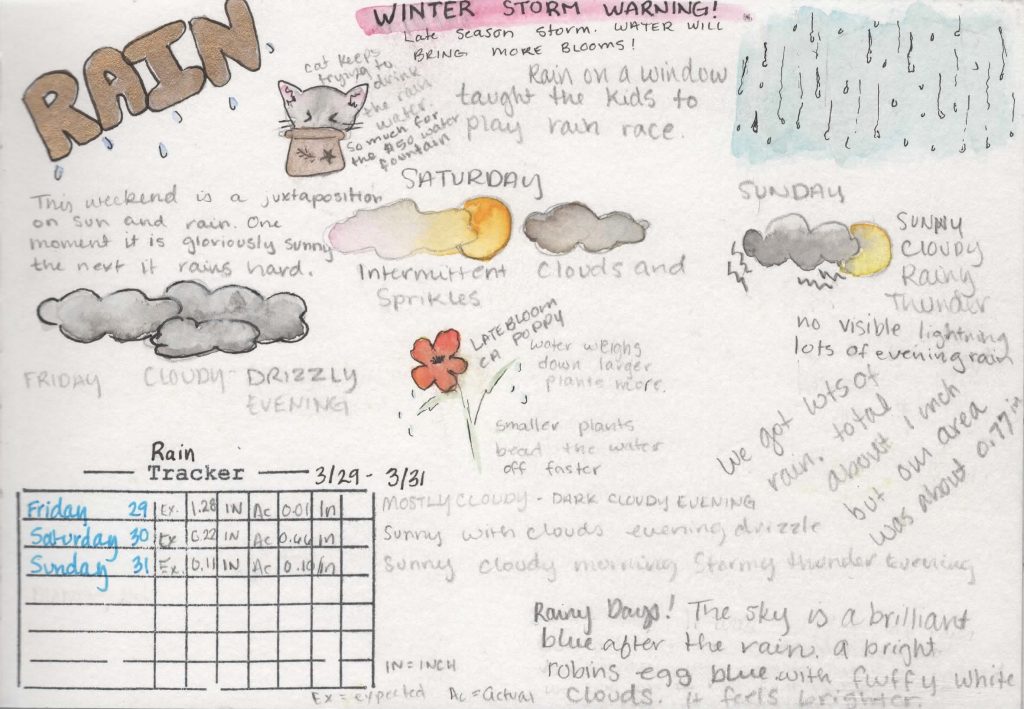 RAIN
WINTER STORM WARNING!
Late season storm. WATER WILL
BRING MORE BLOOMS!
cat keeps
trying to
drink
the rain
water.
so much for
the $50 water
fountain
Rain on a window
taught the kids to
play rain race.
This weekend is a juxtaposition
on sun and rain. One
moment it is gloriously sunny
the next it rains hard.
SATURDAY
Intermittent Clouds and
Sprikles
SUNDAY
SUNNY
CLOUDY
Rainy
Thunder
no visible lightning
lots of evening rain
FRIDAY CLOUDY- DRIZZLY
EVENING
LATE BLOOM
CA POPPY
water weighs
down larger
plants more.
smaller plants
bead the water
off faster
We got lots of
rain. total
about 1 inch
but our area
was about 0.77 in
Rain
Tracker 3/29 - 3/31
Friday 29 Ex. 1.28 IN Ac 0.01 In
Saturday 30 Ex 0.22 IN Ac 0.66 In
Sunday 31 Ex. 0.11 IN Ac 0.10 In
MOSTLY CLOUDY - DARK CLOUDY EVENING
Sunny with clouds evening drizzle
Sunny cloudy morning Stormy thunder Evening
IN = INCH
Ex = expected Ac = Actual
Rainy Days! The sky is a brilliant
blue after the rain. a bright
robins egg blue with fluffy white
clouds. it feels brighter.